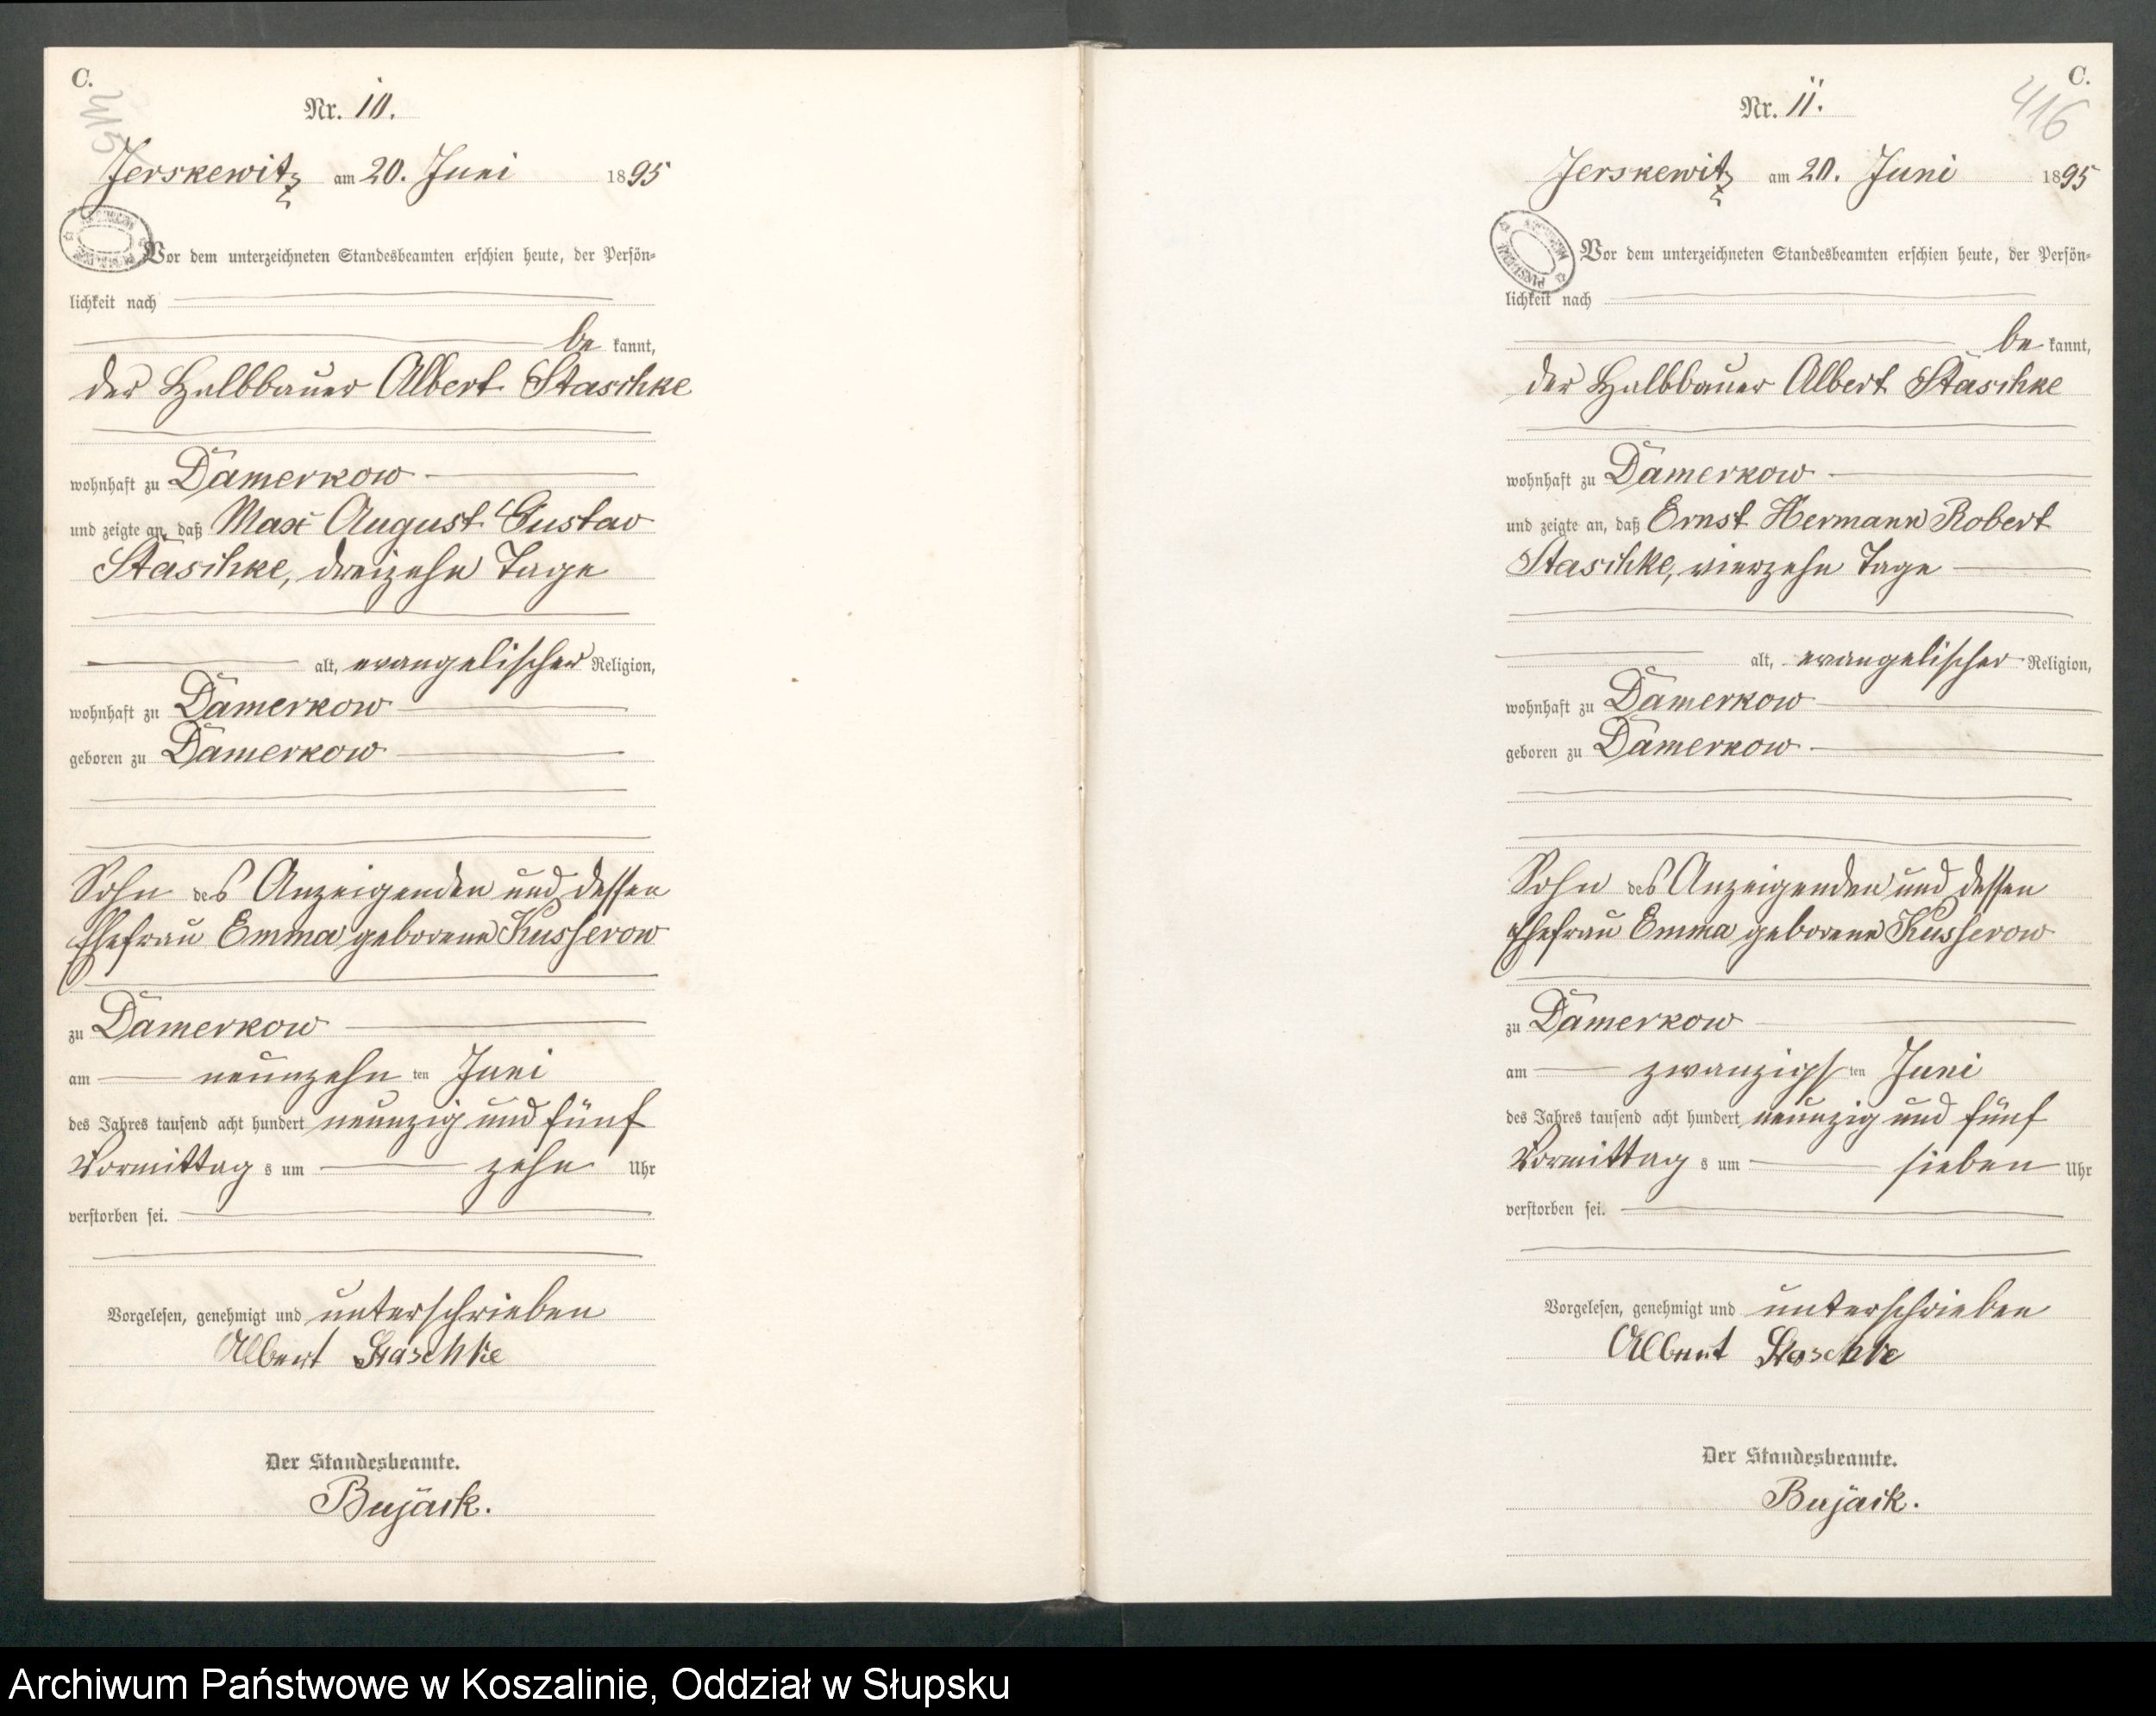 C.
415
Nr. 10.
Jerskewitz am 20. Juni 1895
Vor dem unterzeichneten Standesbeamten erschien heute, der Persön-
lichkeit nach
be kannt,
der Halbbauer Albert Staschke
wohnhaft zu Damerkow
und zeigte an, daß Max August Gustav
Staschke, dreizehn Tage
alt, evangelischer Religion,
wohnhaft zu Damerkow
geboren zu Damerkow
Sohn des Anzeigenden und dessen
Ehefrau Emma geborene Kusserow
zu Damerkow
am neunzehn ten Juni
des Jahres tausend acht hundert neunzig und fünf
Vormittag s um zehn Uhr
verstorben sei.
Vorgelesen, genehmigt und unterschrieben
Albert Staschke
Der Standesbeamte.
Bujack.
C.
416
Nr. 11.
Jerskewitz am 20. Juni 1895
Vor dem unterzeichneten Standesbeamten erschien heute, der Persön-
lichkeit nach
be kannt,
der Halbbauer Albert Staschke
wohnhaft zu Damerkow
und zeigte an, daß Ernst Hermann Robert
Staschke, vierzehn Tage
alt, evangelischer Religion,
wohnhaft zu Damerkow
geboren zu Damerkow
Sohn des Anzeigenden und dessen
Ehefrau Emma geborene Kusserow
zu Damerkow
am zwanzigs ten Juni
des Jahres tausend acht hundert neunzig und fünf
Vormittag s um sieben Uhr
verstorben sei.
Vorgelesen, genehmigt und unterschrieben
Albert Staschke
Der Standesbeamte.
Bujack.
Archiwum Państwowe w Koszalinie, Oddział w Słupsku